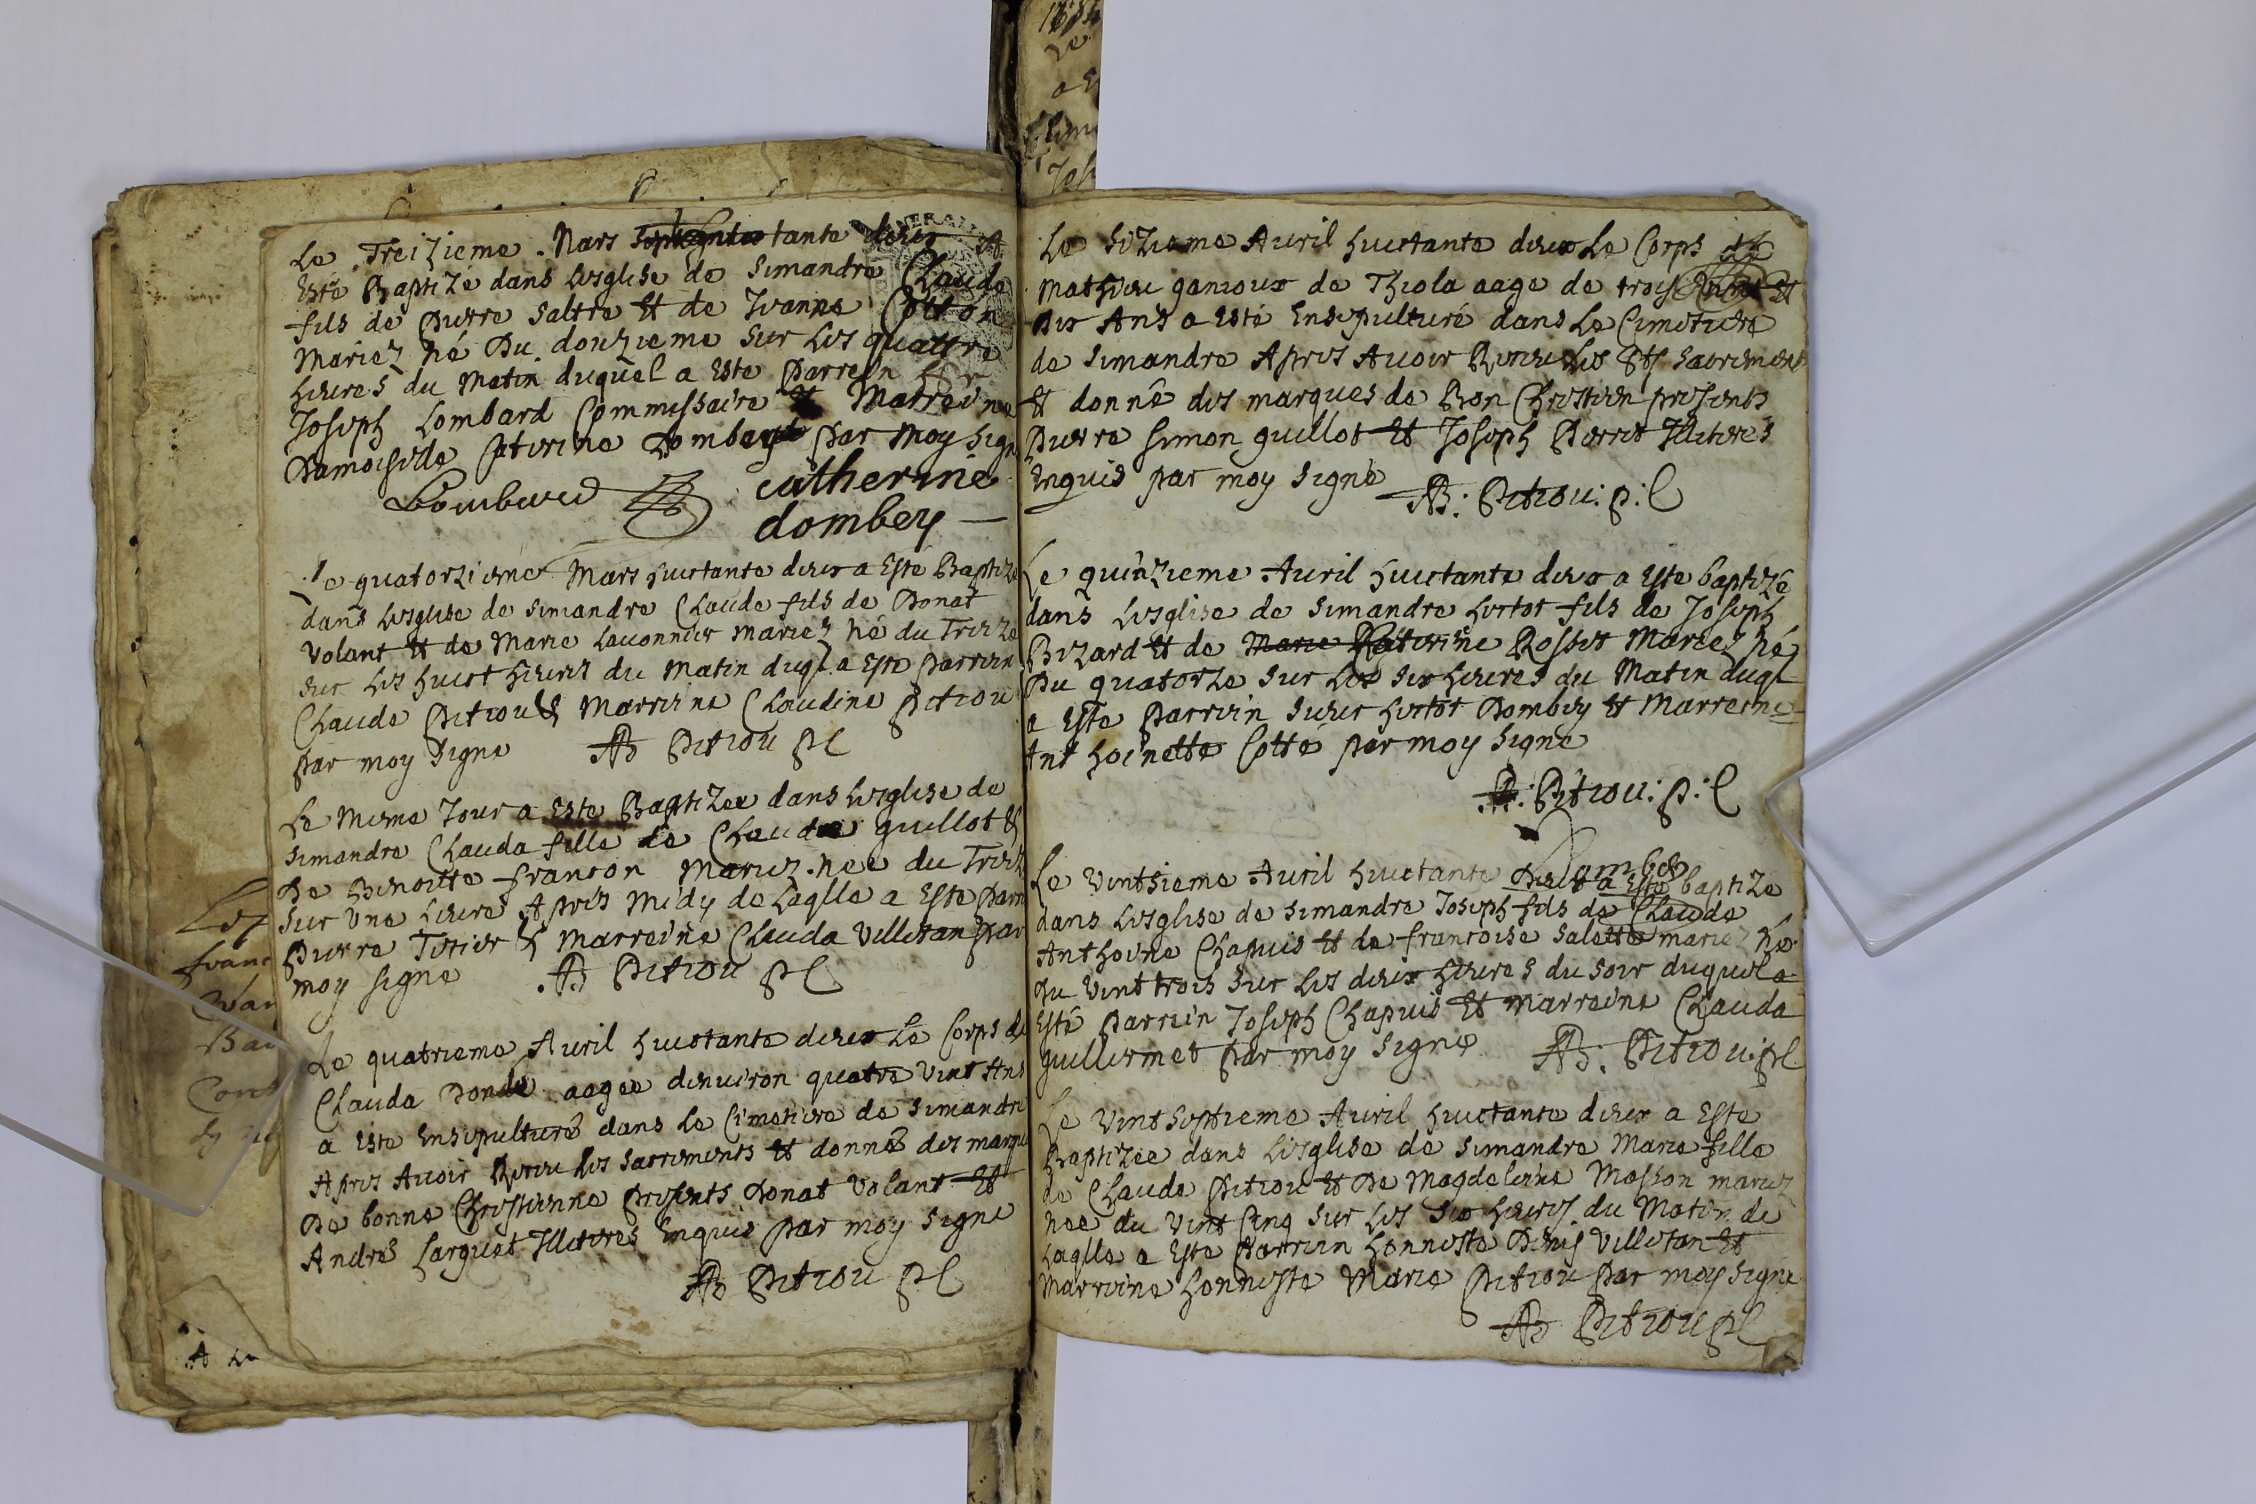 Le Treizieme Mars tante deux A
Este Baptizé dans Lesglise de Simandre Claude
fils de Pierre Saltre Et de Jeanne Cotton
Mariez né Du donzieme sur Les quattre
heures du Matin duquel a Este Parrein
Joseph Lombard Commissaire & Marreine
Damoiselle Caterine Dombey par moy signe
Lombard
catherine
dombey
Le quatorzieme Mars huictante deux a Esté Baptize
dans Lesglise de Simandre Claude fils de Donat
Volant Et de Marie Lauonnier mariez né du Treize
sur Les huict heures du Matin duql a Esté parrein
Claude Petiou & Marreine Claudine Petiou
par moy Signe AB Petiou pC
Le Mesme Jour a Este Baptizee dans Lesglise de
Simandre Clauda fille de Claude guillot &
De Benoitte françon Mariez nee du Treize
sur Une heure Apres Midy de Laqlle a Este Parn
Pierre Tetier & Marreine Clauda Villetan par
moy signe AB Petiou pC
Le quatrieme Auril huictante deux Le Corps de
Clauda Donde aagee denuiron quatre Vint Ans
a Este Ensepulturé dans Le Cimetiere de Simandre
Apres Auoir Receu Les Sacrements Et donné des marqu
De bonne Chrestienne Presents Donat Volant Et
André Larguet Illiteres Enquis par moy Signe
AB Petiou pC
Le Sizieme Auril huictante deux Le Corps de
Mathieu ganioux de Thiola aage de troy Et
Dix Ans a Esté Ensepulturé dans Le Cimetiere
de Simandre Apres Auoir Receu Les Sts Sacrements
Et donné des marques de Bon Chrestien presents
Pierre Simon guillot Et Joseph Perret Illiteres
enquis par moy Signe AB: Petiou: p: C
Le quinzieme Auril huictante deux a Este baptizé
dans Lesglise de Simandre hector fils de Joseph
Bizard Et de Marie Katerine Rosset Mariez né
Du quatorze sur Les six heures du Matin duql
a Este Parrein Sieur hector Dombey Et Marreine
Anthoinette Cotté par moy Signe
AB: Petiou: p: C
Le Vintsieme Auril huictante Deux a Este baptize
dans Lesglise de Simandre Joseph fils de Claude
Anthoine Chapuis Et de francoise Salette mariez Né
du Vint trois sur Les deux heures du Soir duquel a
Esté Parrein Joseph Chapuis Et marreine Clauda
guillermet par moy Signe AB: Petiou: pC
Le Vint Septieme Auril huictante deux a Esté
Baptizee dans Lesglise de Simandre Marie fille
de Claude Petiou Et De Magdeleine Masson mariez
nee du Vint Cinq sur Les Six heures du Matin de
Laqlle a Este Parrein honneste Denis Villetan Et
Marreine honneste Marie Petiou par moy Signe
AB Petiou pC